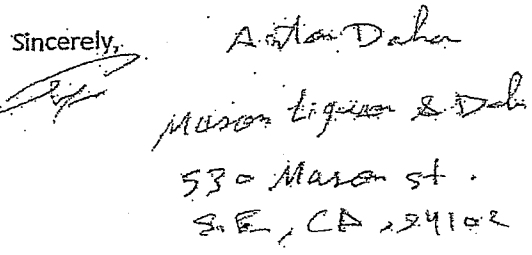 Sincerely,
Anton Daher
Mason Liquor & Deli
530 Mason st.
S.F., CA, 94102